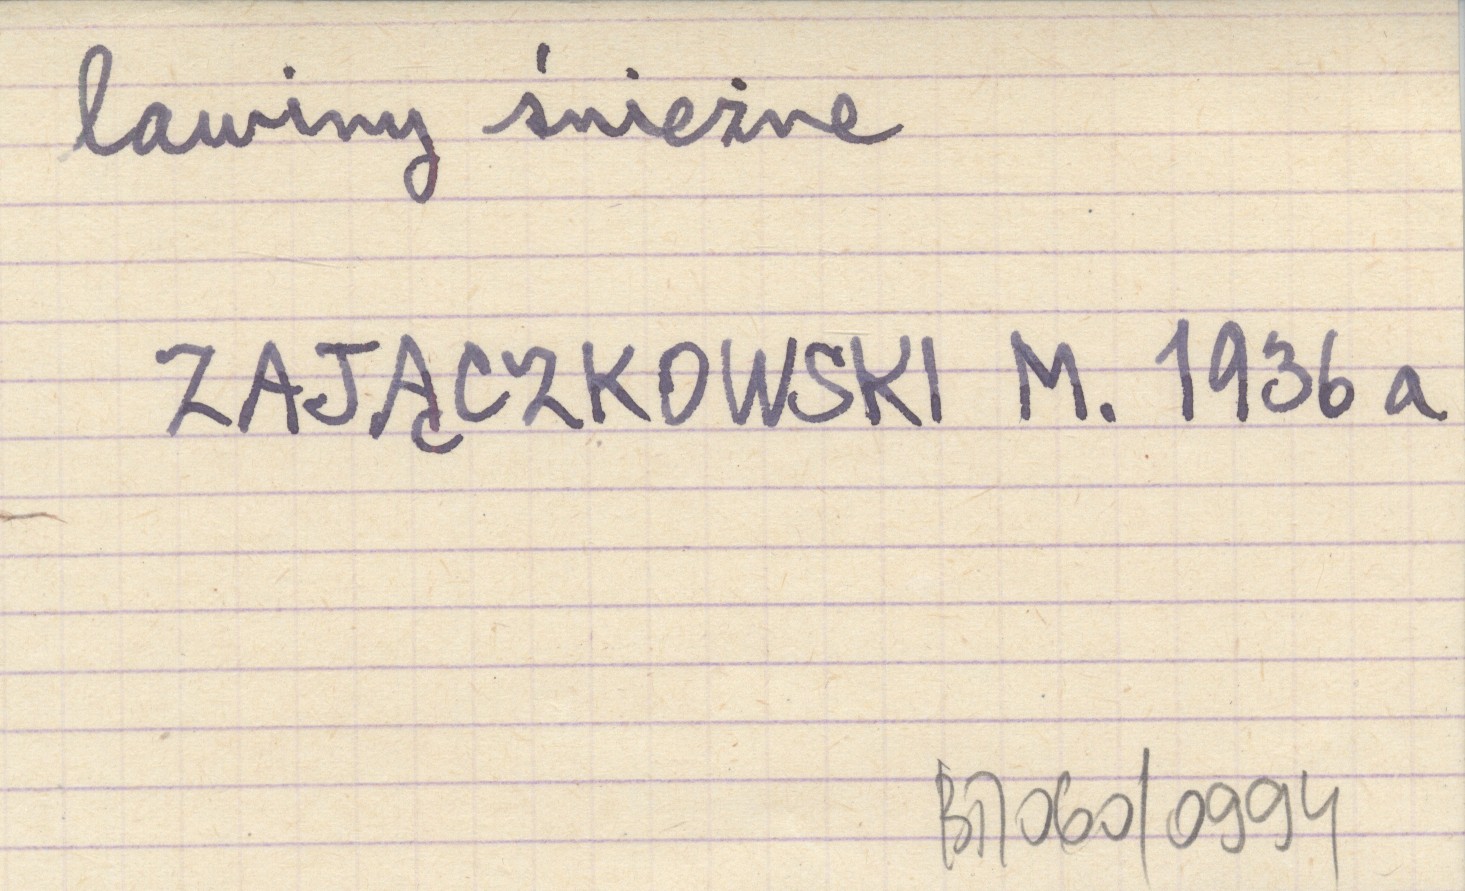 lawiny śnieżne
ZAJĄCZKOWSKI M. 1936 a
B7/060/0994